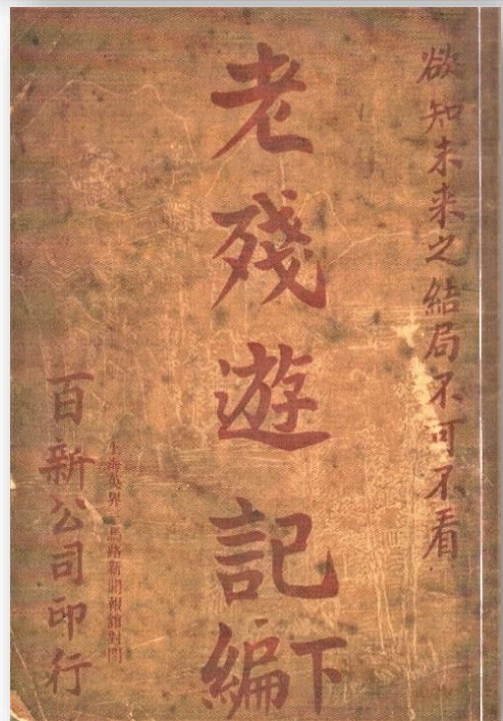 欲知未来之結局不可不看
老殘遊記下編
上海英界三馬路新聞報館對門
百新公司印行